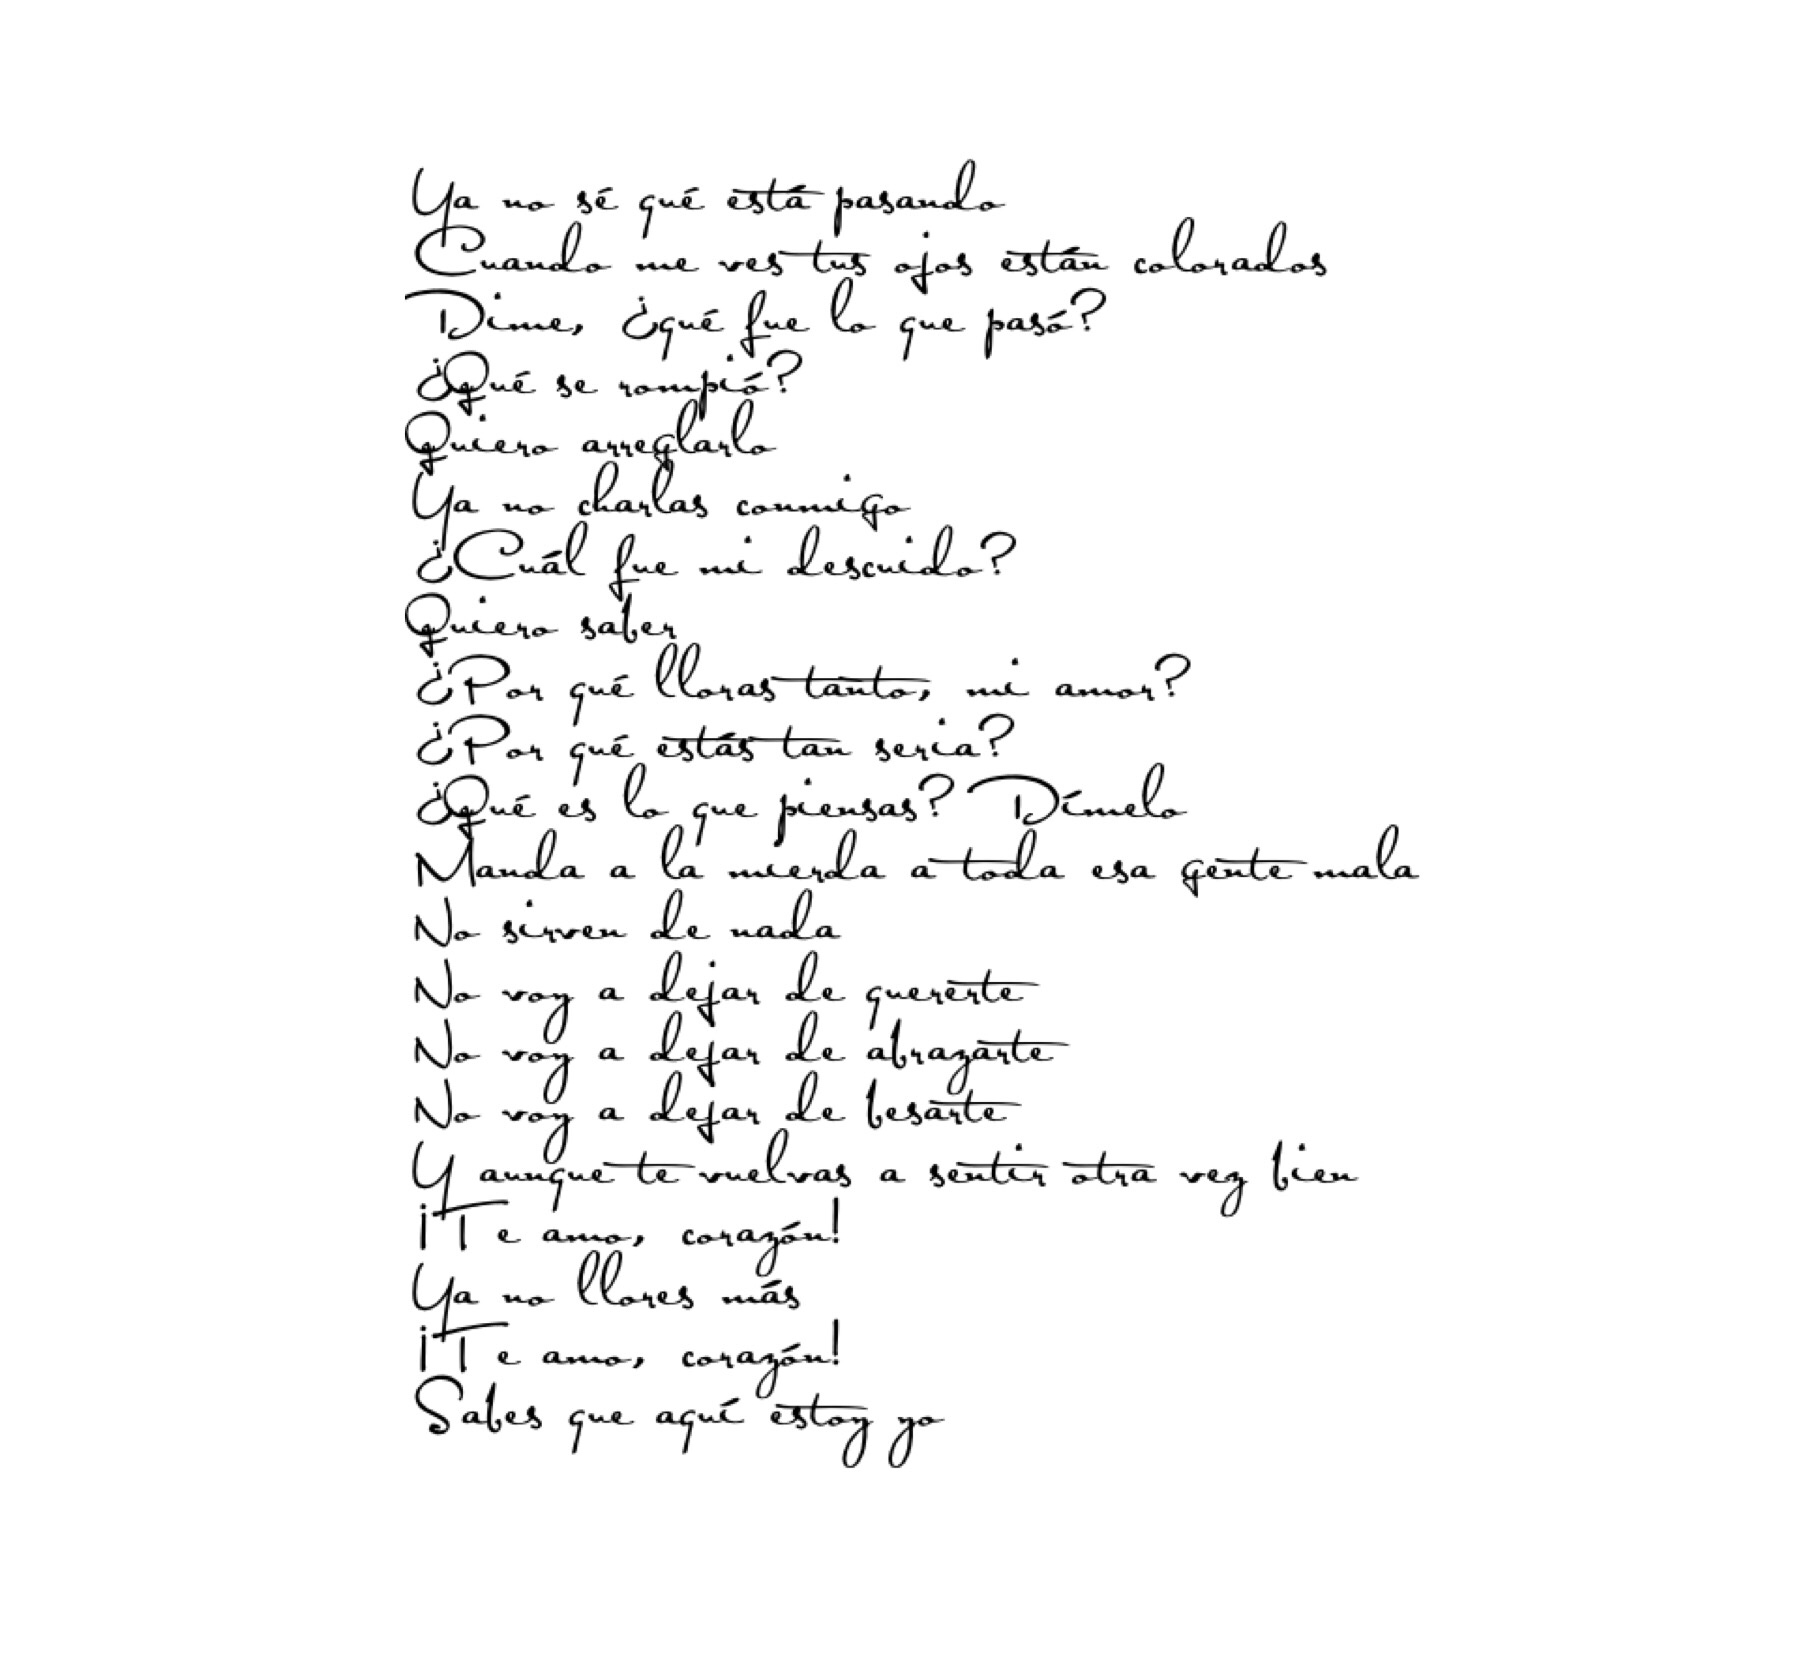 Ya no sé qué está pasando
Cuando me ves tus ojos están colorados
Dime, ¿qué fue lo que pasó?
¿Qué se rompió?
Quiero arreglarlo
Ya no charlas conmigo
¿Cuál fue mi descuido?
Quiero saber
¿Por qué lloras tanto, mi amor?
¿Por qué estás tan seria?
¿Qué es lo que piensas? Dímelo
Manda a la mierda a toda esa gente mala
No sirven de nada
No voy a dejar de quererte
No voy a dejar de abrazarte
No voy a dejar de besarte
Y aunque te vuelvas a sentir otra vez bien
¡Te amo, corazón!
Ya no llores más
¡Te amo, corazón!
Sabes que aquí estoy yo